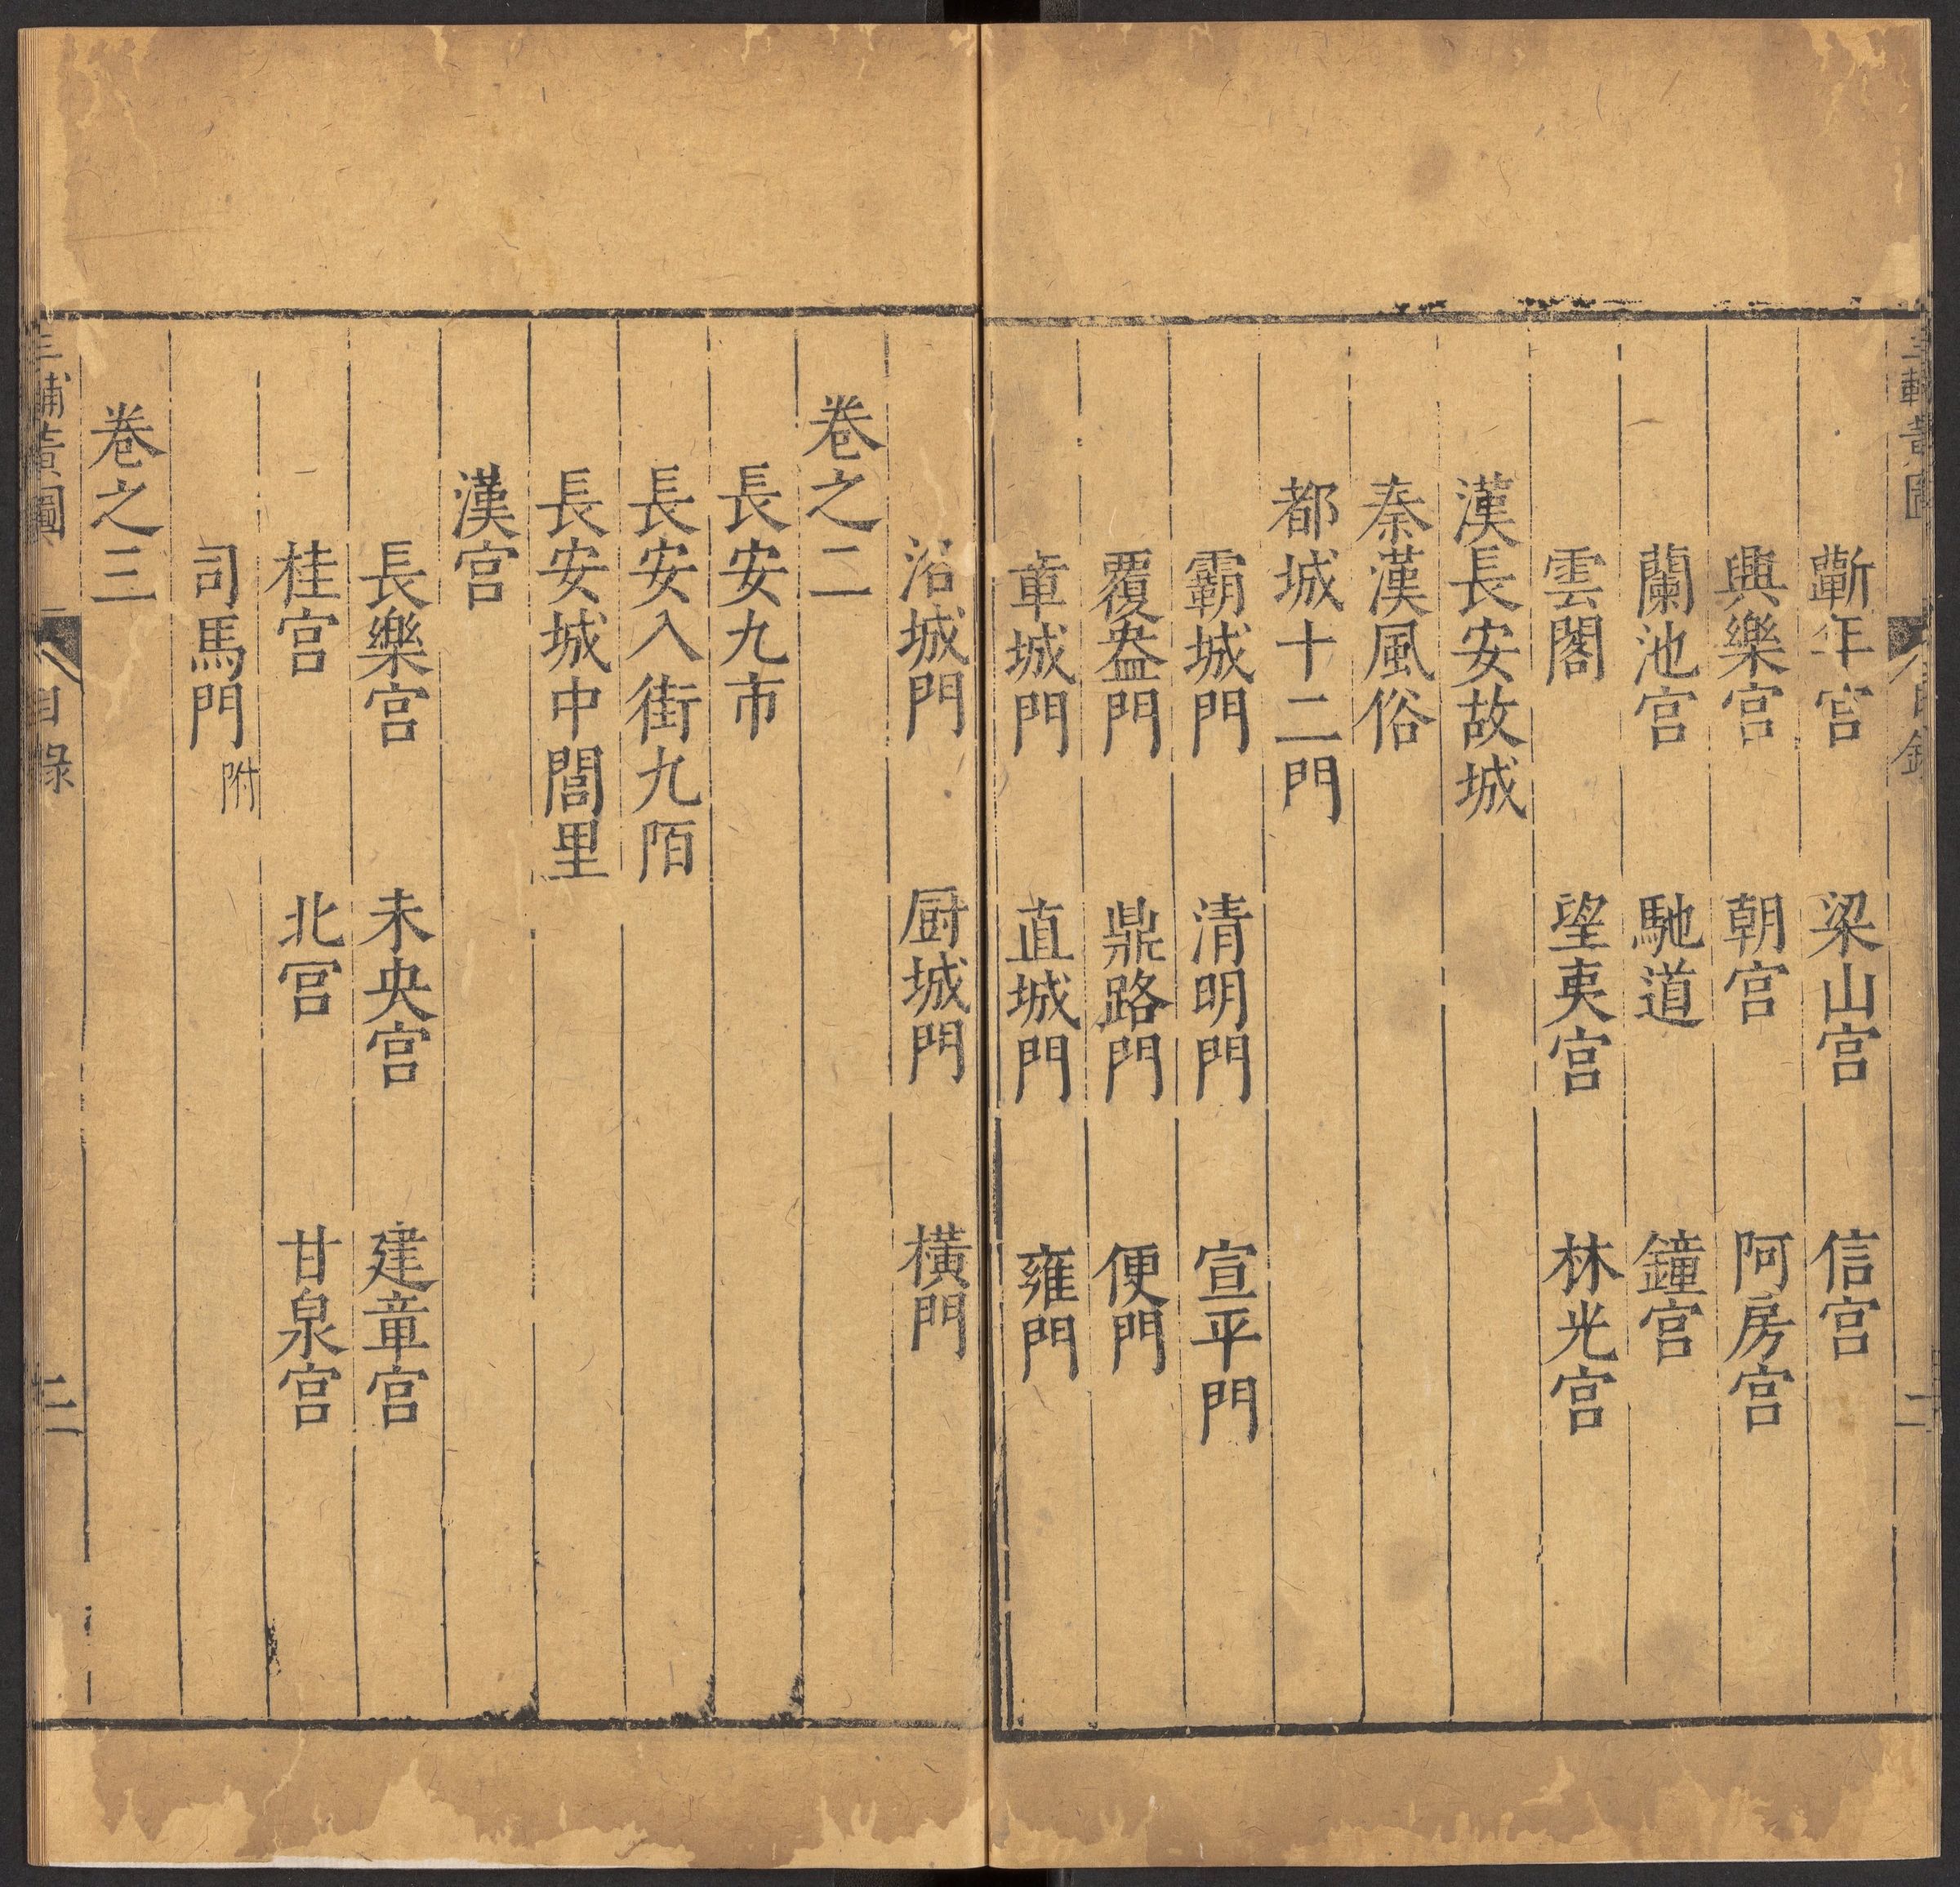 三輔黃圖 目錄 二
蘄年宫 梁山宫 信宫
興樂宫 朝宫 阿房宫
蘭池宫 馳道 鐘宫
雲閣 望夷宫 林光宫
漢長安故城
秦漢風俗
都城十二門
霸城門 清明門 宣平門
覆盎門 鼎路門 便門
章城門 直城門 雍門
沿城門 厨城門 橫門
卷之二
長安九市
長安入街九陌
長安城中閭里
漢宫
長樂宫 未央宫 建章宫
桂宫 北宫 甘泉宫
司馬門附
卷之三
三輔黃圖 目錄 三